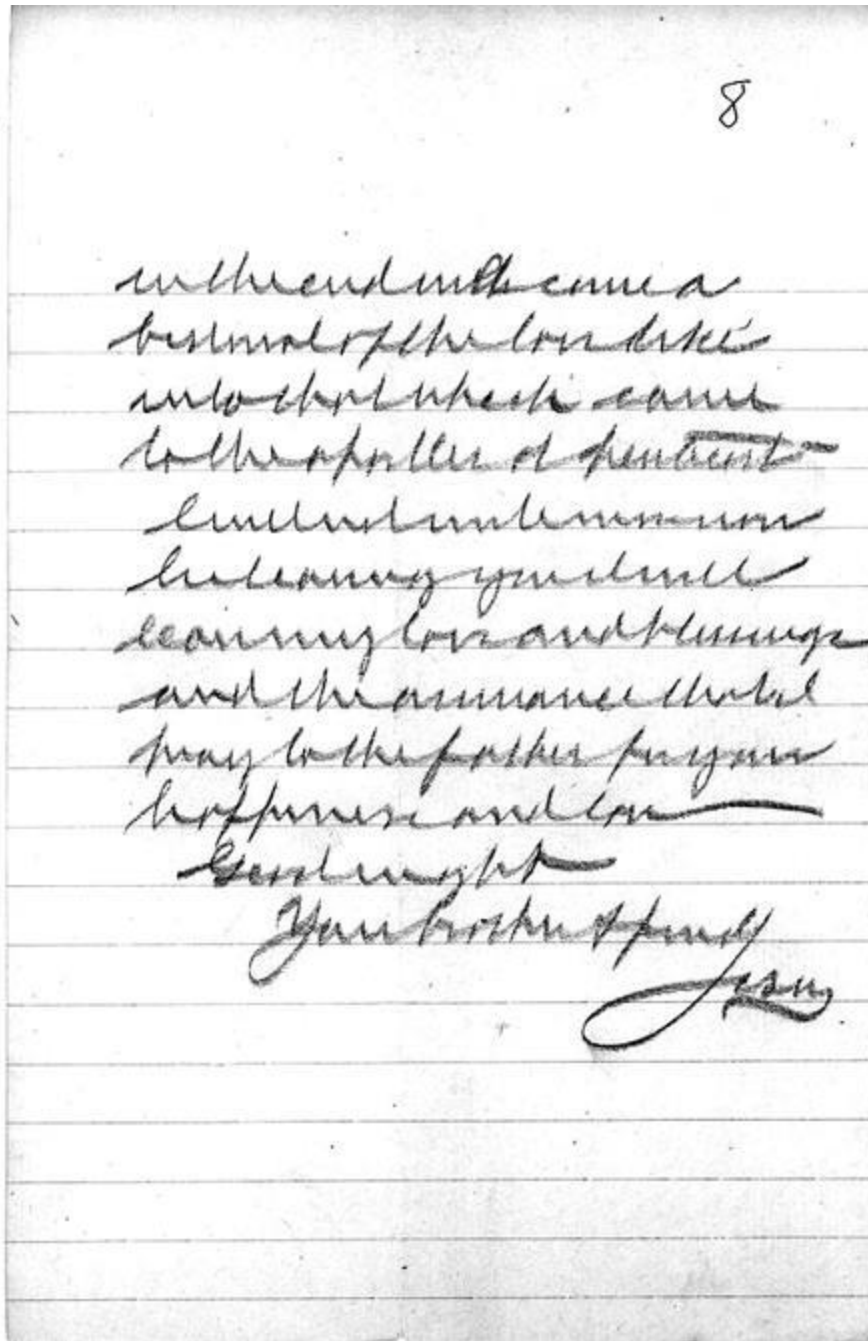 8
in the end will come a
bestowal of the love like
unto that which came
to the apostles at pentecost
I will not write more now
but leaving you I will
leave my love and blessings
and the assurance that I
pray to the Father for your
happiness and love
Good night
Your brother & friend
Jesus